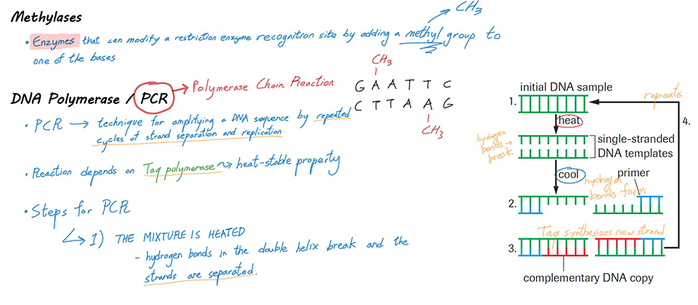 Methylases
CH3
• Enzymes that can modify a restriction enzyme recognition site by adding a methyl group to
one of the bases
DNA Polymerase / PCR
Polymerase Chain Reaction
• PCR → technique for amplifying a DNA sequence by repeated
cycles of strand separation and replication
• Reaction depends on Taq polymerase heat-stable property
• Steps for PCR
1) THE MIXTURE IS HEATED
- hydrogen bonds in the double helix break and the
strands are separated.
CH3
G A A T T C
C T T A A G
CH3
initial DNA sample
1.
repeats
heat
4.
hydrogen
bonds
break
single-stranded
DNA templates
cool
hydrogen
bonds form
primer
2.
Taq synthesizes new strand
3.
complementary DNA copy